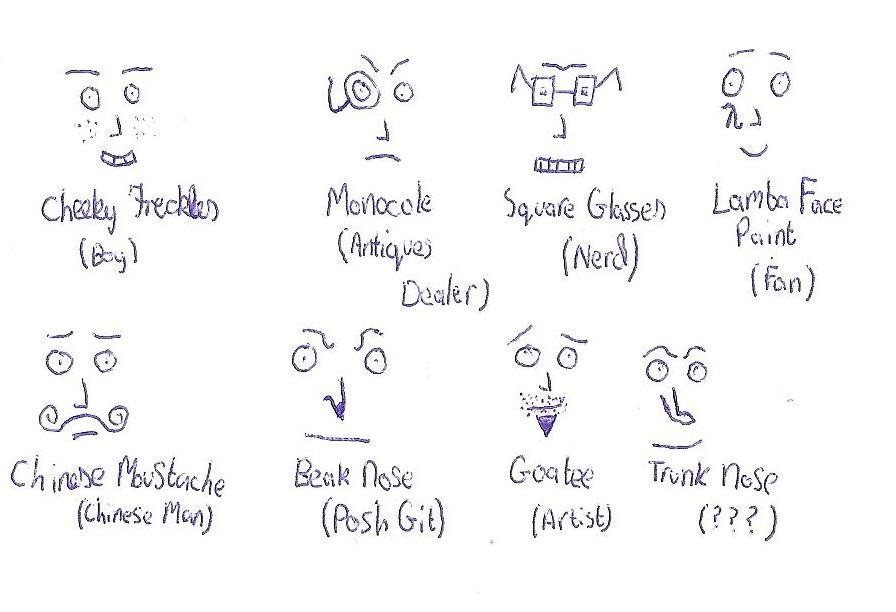 Cheeky Freckles
(Boy)
Monocole
(Antiques
Dealer)
Square Glasses
(Nerd)
Lamba Face
Paint
(Fan)
Chinese Moustache
(Chinese Man)
Beak Nose
(Posh Git)
Goatee
(Artist)
Trunk Nose
(???)